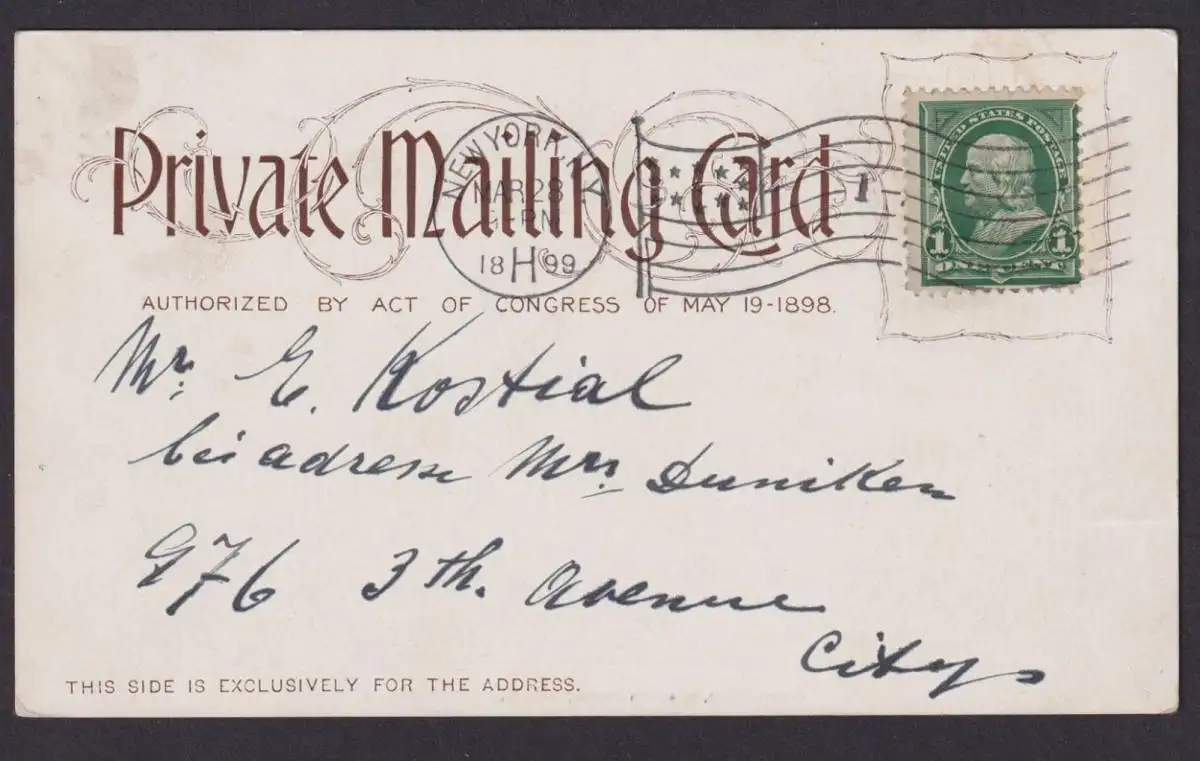 Private Mailing Card
NEW YORK, N.Y.
MAR 28
PM
18 H 99
1
UNITED STATES POSTAGE
1 1
ONE CENT
AUTHORIZED BY ACT OF CONGRESS OF MAY 19-1898.
Mr. E. Kostial
bei adresse Mrs Duniken
976 3th. Avenue
City
THIS SIDE IS EXCLUSIVELY FOR THE ADDRESS.